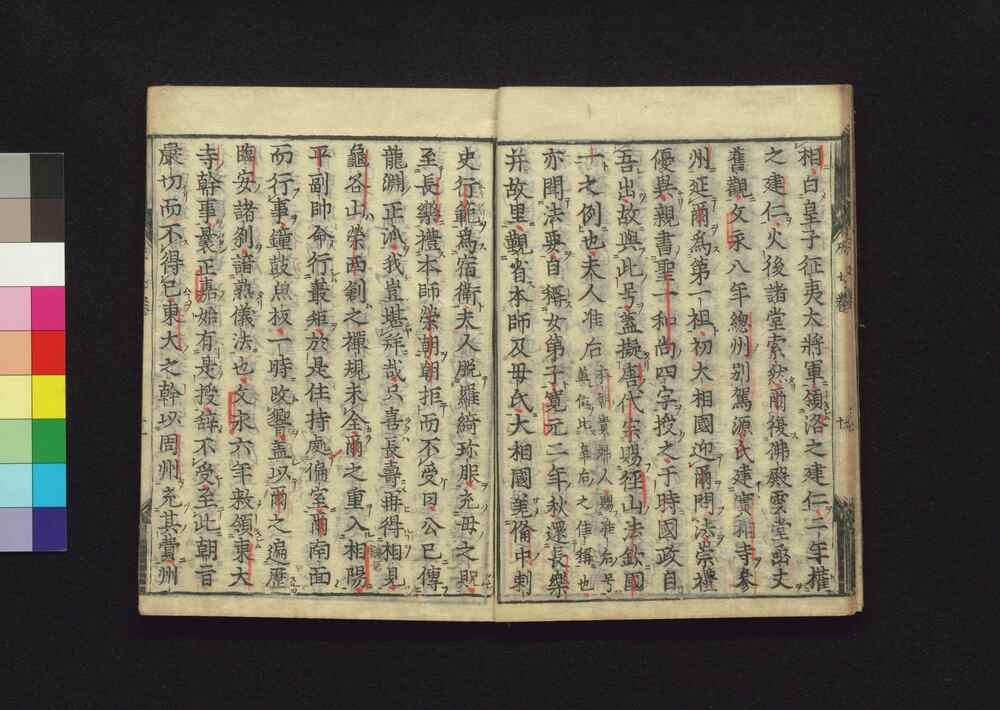 相白皇子征夷大將軍領洛之建仁二年權
之建仁火後諸堂索然爾復佛殿雲堂函丈
舊觀文永八年總州別駕源氏建寶福寺參
州延爾爲第一祖初大相國迎爾問法崇禮
優異親書聖一和尚四字授之于時國政自
吾出故與此号蓋擬唐代宗賜徑山法欽國
一之例也夫人准后
亦聞法要自稱女弟子寛元二年秋還長樂
并故里觀省本師及母氏大相國差脩中刺
史行範爲宿衛夫人脱羅綺珍服充母之貺
至長樂禮本師榮朝朝拒而不受曰公已傳
龍淵正派我豈堪拜哉只喜長壽再得相見
龜谷山榮西剏之禪規未全爾之重入相陽
平副帥命行叢矩於是住持處偏室爾南面
而行事鐘鼓魚板一時改響蓋以爾之遍歷
臨安諸刹諳熟儀法也文永六年敕領東大
寺幹事曩正嘉始有是授辭不受至此朝旨
嚴切而不得已東大之幹以周州充其賞州